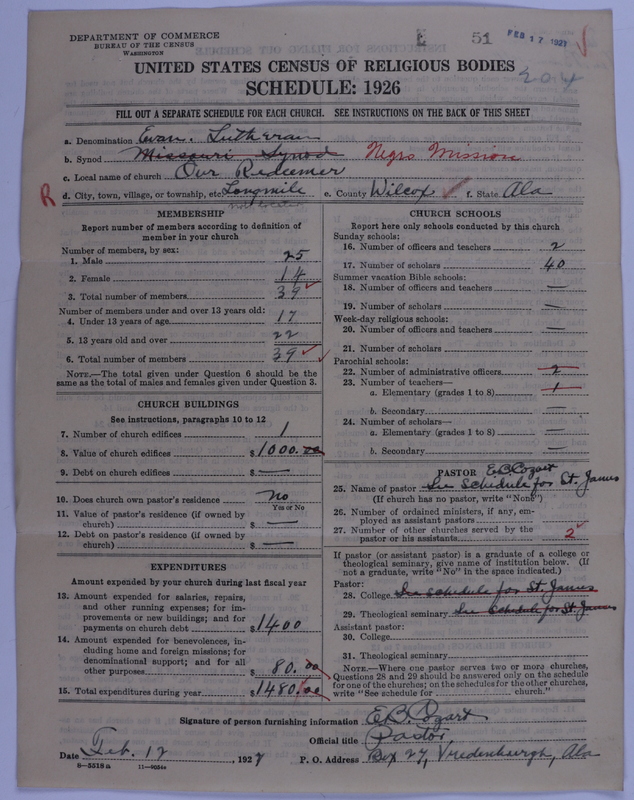 DEPARTMENT OF COMMERCE
BUREAU OF THE CENSUS
WASHINGTON
51
FEB 17 1927
UNITED STATES CENSUS OF RELIGIOUS BODIES
204
SCHEDULE: 1926
FILL OUT A SEPARATE SCHEDULE FOR EACH CHURCH. SEE INSTRUCTIONS ON THE BACK OF THIS SHEET
a. Denomination Evan. Lutheran
b. Synod Missouri Synod Negro Mission
c. Local name of church Our Redeemer
R d. City, town, village, or township, etc. Longmile e. County Wilcox f. State Ala
not located
MEMBERSHIP
Report number of members according to definition of
member in your church
Number of members, by sex:
1. Male 25
2. Female 14
3. Total number of members 39
Number of members under and over 13 years old:
4. Under 13 years of age 17
5. 13 years old and over 22
6. Total number of members 39
NOTE.—The total given under Question 6 should be the
same as the total of males and females given under Question 3.
CHURCH BUILDINGS
See instructions, paragraphs 10 to 12
7. Number of church edifices 1
8. Value of church edifices $1000.00
9. Debt on church edifices $ —
10. Does church own pastor's residence? No
Yes or No
11. Value of pastor's residence (if owned by
church) $ —
12. Debt on pastor's residence (if owned by
church) $ —
EXPENDITURES
Amount expended by your church during last fiscal year
13. Amount expended for salaries, repairs,
and other running expenses; for im-
provements or new buildings; and for
payments on church debt $1400
14. Amount expended for benevolences, in-
cluding home and foreign missions; for
denominational support; and for all
other purposes $ 80.00
15. Total expenditures during year $1480.00
CHURCH SCHOOLS
Report here only schools conducted by this church
Sunday schools:
16. Number of officers and teachers 2
17. Number of scholars 40
Summer vacation Bible schools:
18. Number of officers and teachers —
19. Number of scholars —
Week-day religious schools:
20. Number of officers and teachers —
21. Number of scholars
Parochial schools:
22. Number of administrative officers 2
23. Number of teachers—
a. Elementary (grades 1 to 8) 1
b. Secondary —
24. Number of scholars—
a. Elementary (grades 1 to 8) —
b. Secondary —
PASTOR E B Cozart
25. Name of pastor See Schedule for St. James
(If church has no pastor, write "None")
26. Number of ordained ministers, if any, em-
ployed as assistant pastors
27. Number of other churches served by the
pastor or his assistants 2
If pastor (or assistant pastor) is a graduate of a college or
theological seminary, give name of institution below. (If
not a graduate, write "No" in the space indicated.)
Pastor:
28. College See schedule for St. James
29. Theological seminary See Schedule for St James
Assistant pastor:
30. College
31. Theological seminary
NOTE.—Where one pastor serves two or more churches,
Questions 28 and 29 should be answered only on the schedule
for one of the churches; on the schedules for the other churches,
write "See schedule for ............ church."
Signature of person furnishing information E. B. Cozart
Official title Pastor
Date Feb. 12, 1927 P. O. Address Box 27, Vredenburgh, Ala
8—5518a 11—9054